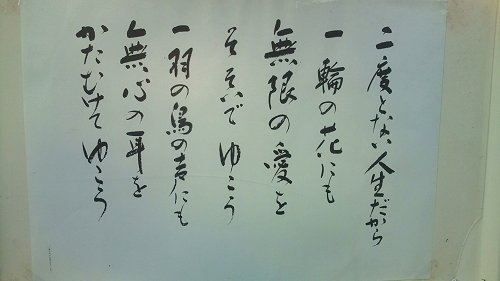 二度とない人生だから
一輪の花にも
無限の愛を
そそいでゆこう
一羽の鳥の声にも
無心の耳を
かたむけてゆこう